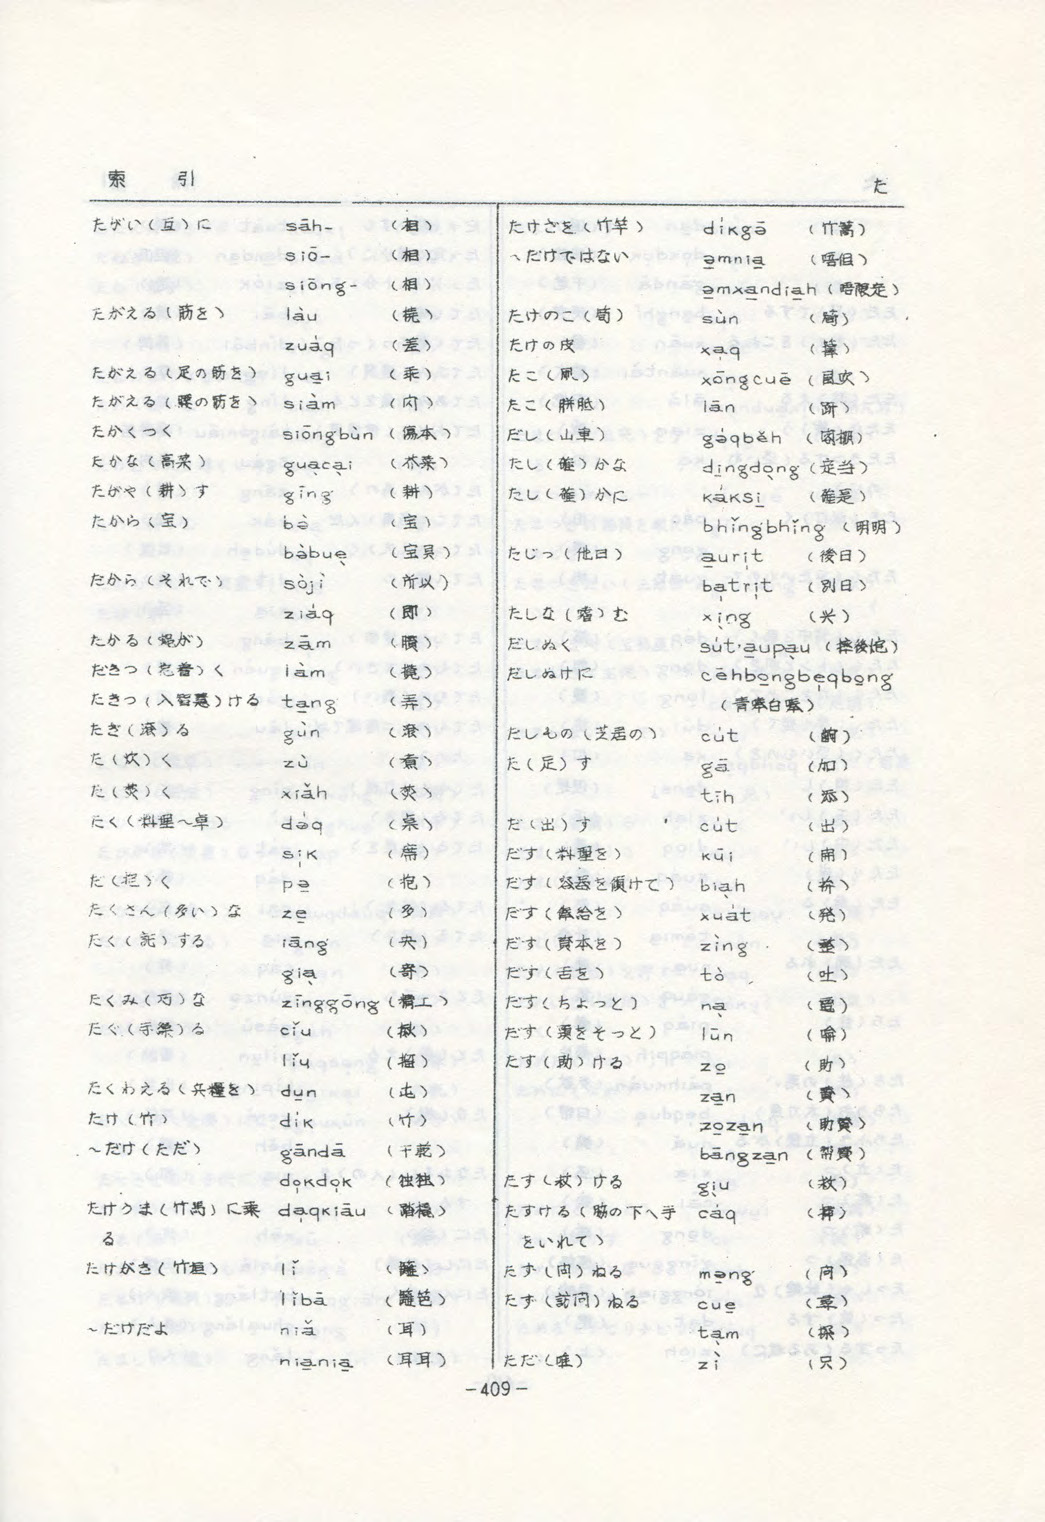 索引
た
たがい(互)に sāh- (相)
siō- (相)
siōng- (相)
たがえる(筋を) làu (橈)
zuáq (差)
たがえる(足の筋を) guạ̱i (乖)
たがえる(腰の筋を) siàm (闪)
たかくつく siōngbùn (傷本)
たかな(高菜) guạ̱cạ̱i (芥菜)
たがや(耕)す gīng (耕)
たから(宝) bə̀ (宝)
bə̀bụe̱ (宝貝)
だから(それで) sòjì (所以)
ziáq (即)
たかる(蝿が) zām (𫜵)
だきつ(抱着)く làm (揽)
たきつ(入智慧)ける ta̱ng (弄)
たぎ(滾)る gùn (滾)
た(炊)く zù (煮)
た(焚)く xiǎh (焚)
たく(料理〜卓) də́q (桌)
sịk (席)
だ(抱)く pə̱ (抱)
たくさん(多い)な ze̱ (多)
たく(託)する iāng (央)
gịa̱ (寄)
たくみ(巧)な zīnggōng (精工)
たぐ(手繰)る cǐu (揪)
lǐu (揺)
たくわえる(兵糧を) du̱n (屯)
たけ(竹) dík (竹)
〜だけ(ただ) gāndā (干乾)
dọkdọk (独独)
たけうま(竹馬)に乗 dạqkiāu (踏橇)
る
たけがき(竹垣) lǐ (籬)
lǐbā (籬笆)
〜だけだよ niǎ (耳)
nia̱nia̱ (耳耳)
たけざを(竹竿) díkgə̄ (竹篙)
〜だけではない ə̱mnia̱ (唔但)
ə̱mxa̱ndia̱h (唔限定)
たけのこ(筍) sùn (筍)
たけの皮 xạq (籜)
たこ(凧) xōngcuē (風吹)
たこ(胼胝) lān (趼)
だし(山車) gáqběh (閣棚)
たし(確)かな di̱ngdọ̱ng (定当)
たし(確)かに káksi̱ (確是)
bhǐngbhǐng (明明)
たじつ(他日) a̱urịt (後日)
bạtrịt (別日)
たしな(嗜)む xị̱ng (兴)
だしぬく
だしぬけに cēhbo̱ngbẹqbo̱ng
だしもの(芝居の) cút (齣)
た(足)す gā (加)
tīh (添)
だ(出)す cút (出)
だす(料理を) kūi (開)
だす(容器を傾けて)
だす(電報を)
だす(資本を)
だす(舌を) tò (吐)
だす(ちょっと)
だす(頭をそっと) lūn
たす(助)ける zo̱ (助)
za̱n (賛)
zo̱za̱n (助賛)
bāngza̱n (幇賛)
たす(救)ける gị̱u (救)
たすける(脇の下へ手 cáq
をいれて)
たず(問)ねる mə̱ng (問)
たず(訪問)ねる cue̱
ta̱m (探)
ただ(唯) zì (只)
-409-